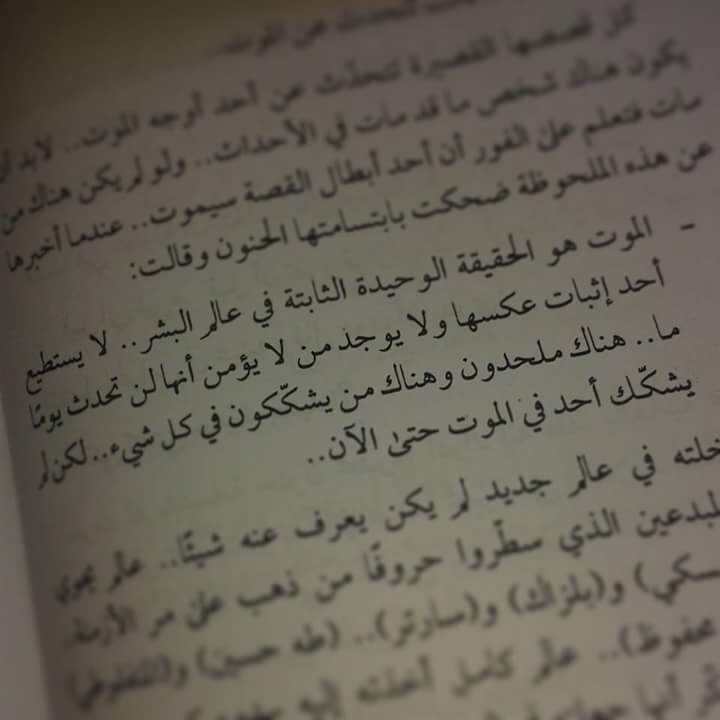 تتحدث عن الموت..
كل قصصها القصيرة تتحدّث عن أحد أوجه الموت.. لابد أن
يكون هناك شخص ما قد مات في الأحداث.. ولو لم يكن هناك من
مات فتعلم على الفور أن أحد أبطال القصة سيموت.. عندما أخبرها
عن هذه الملحوظة ضحكت بابتسامتها الحنون وقالت:
- الموت هو الحقيقة الوحيدة الثابتة في عالم البشر.. لا يستطيع
أحد إثبات عكسها ولا يوجد من لا يؤمن أنها لن تحدث يومًا
ما.. هناك ملحدون وهناك من يشكّكون في كل شيء.. لكن لم
يشكّك أحد في الموت حتى الآن..
خلته في عالم جديد لم يكن يعرف عنه شيئًا.. عالم يحوي
لمبدعين الذي سطّروا حروفًا من ذهب على مر الأزمنة.
سكي) و(بلزاك) و(سارتر).. (طه حسين) و(المنفلوطي)
محفوظ).. عالم كامل أخذته إليه